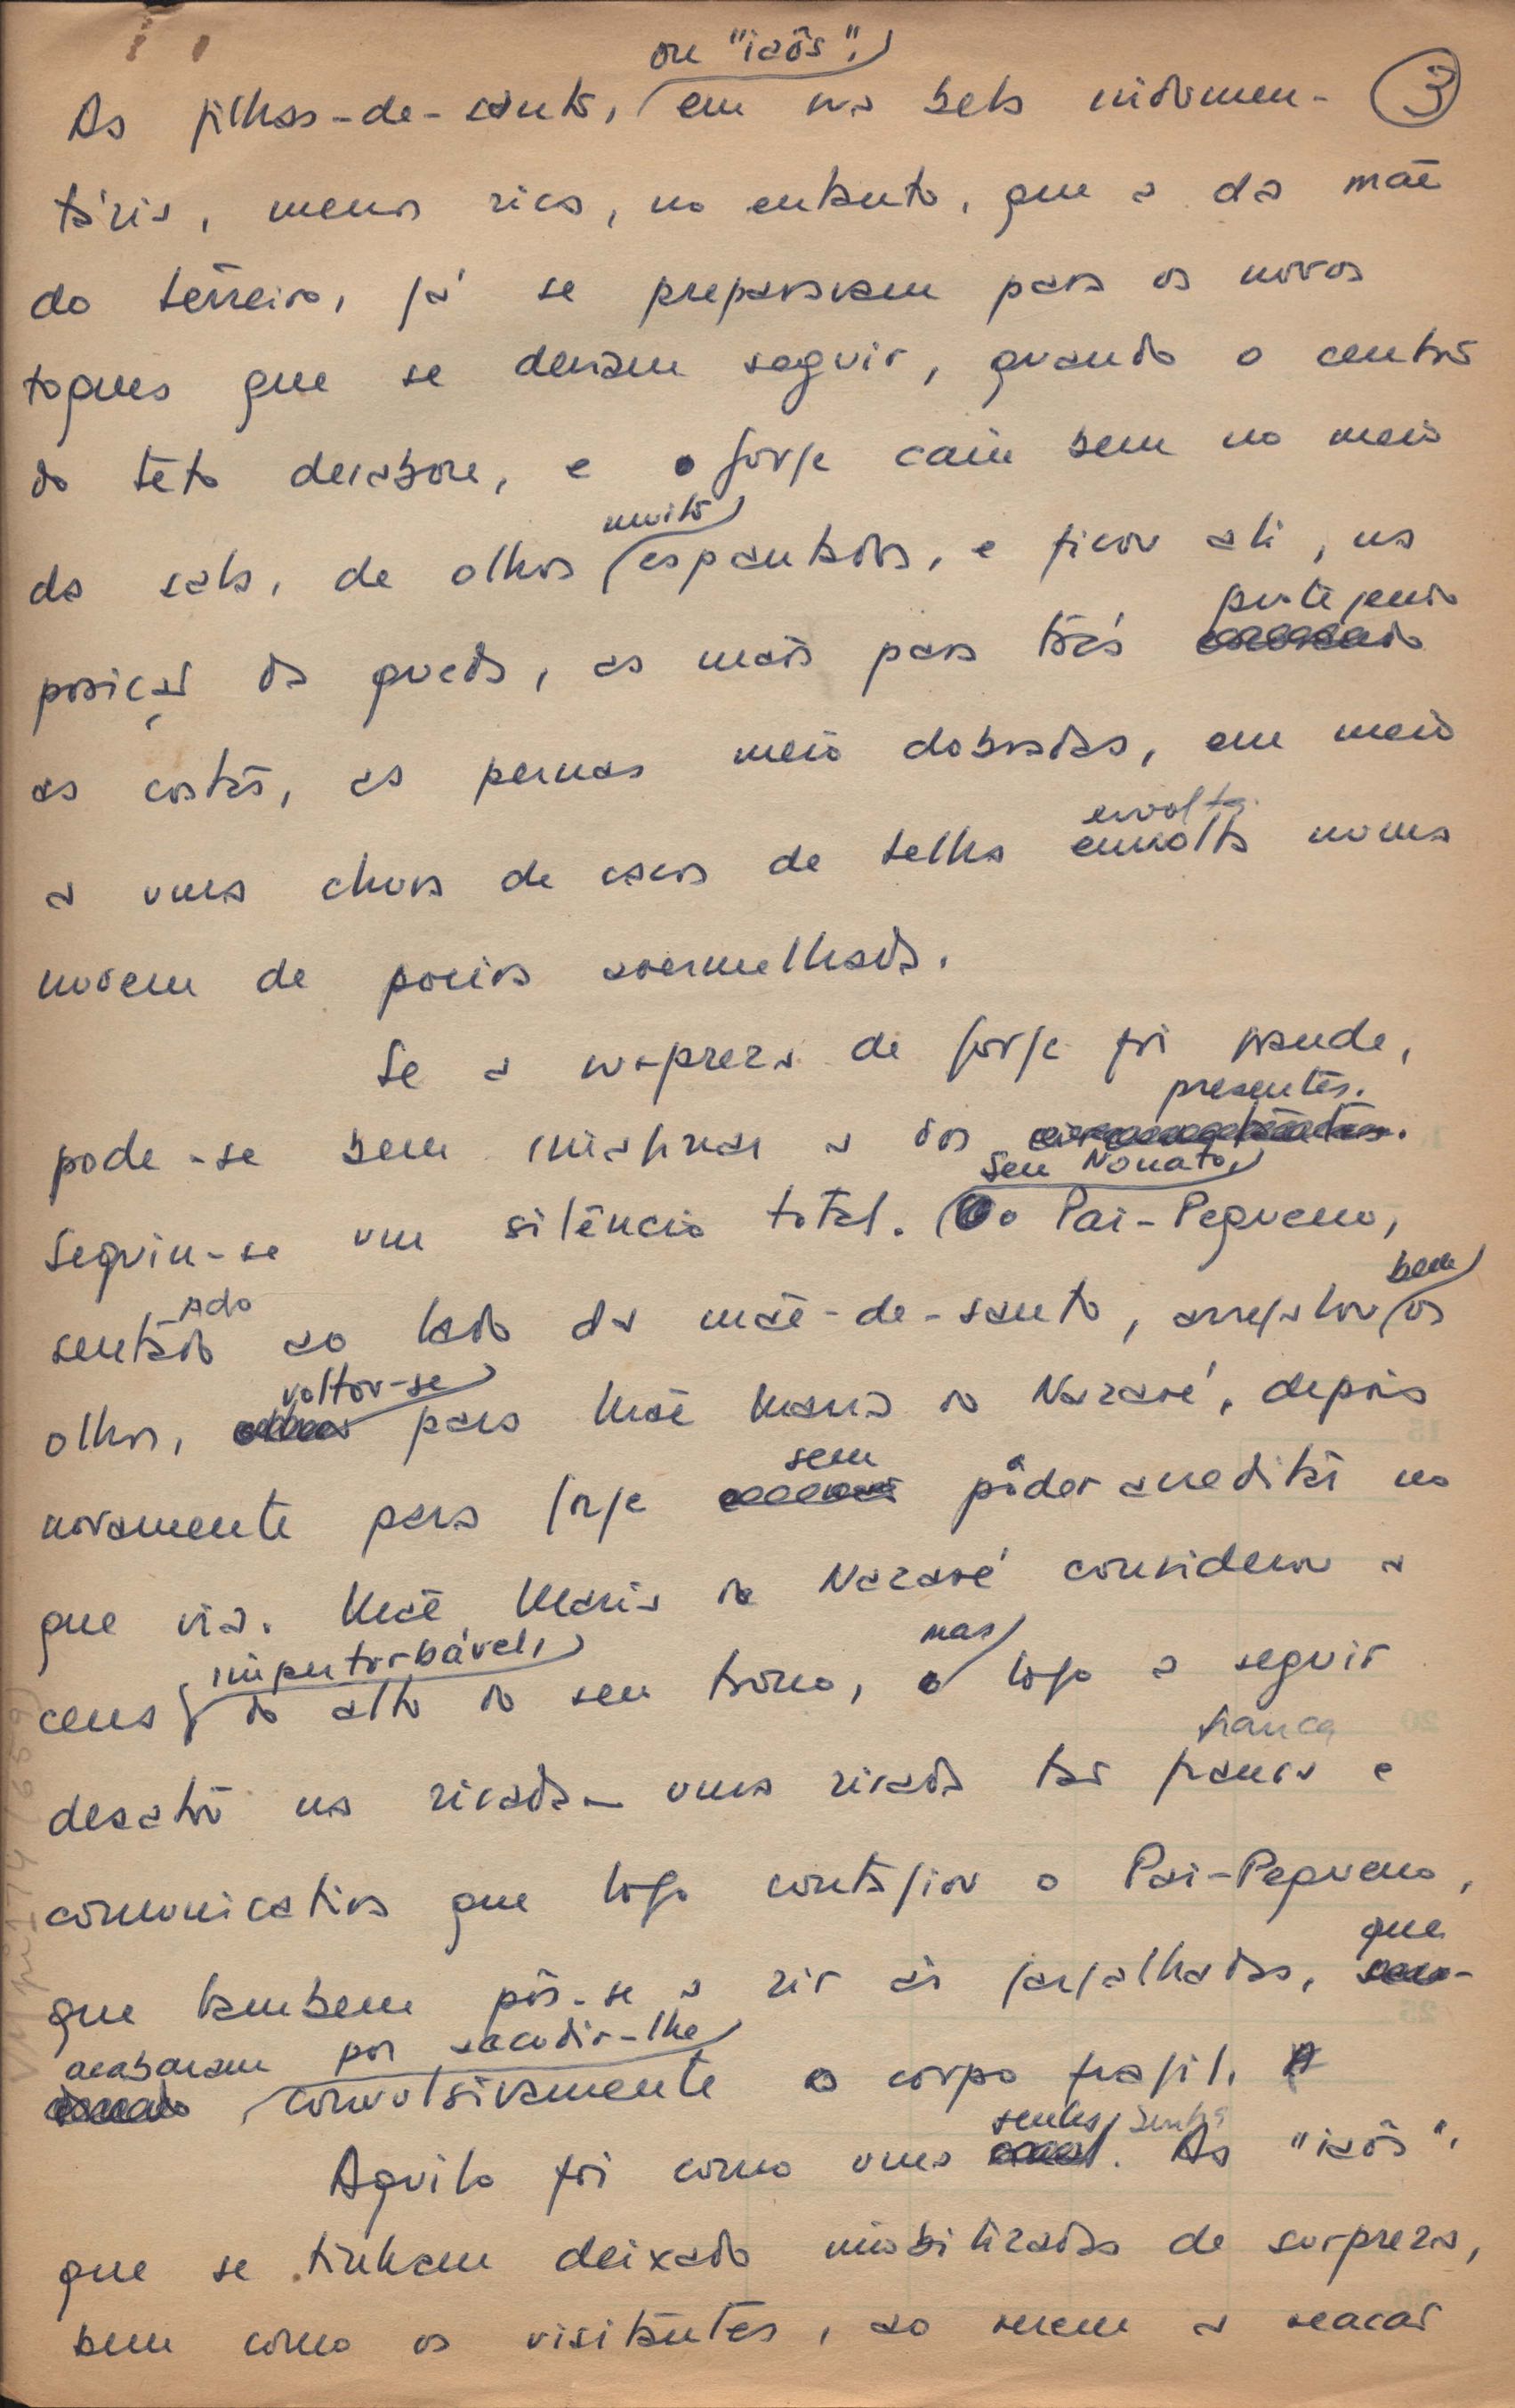 ou "iaôs",
As filhas-de-santo, em sua bela indumen- 3
tária, menos rica, no entanto, que a da mãe
do terreiro, já se preparavam para os novos
toques que se deviam seguir, quando o centro
do teto desabou, e Jorge caiu bem no meio
muito
da sala, de olhos espantados, e ficou ali, na
protejendo
posição da queda, as mãos para trás
as costas, as pernas meio dobradas, em meio
envolta
a uma chuva de cacos de telha envolta numa
nuvem de poeira avermelhada.
Se a surpreza de Jorge foi grande,
presentes.
pode-se bem imaginar a dos
Seu Nonato,
Seguiu-se um silêncio total. o Pai-Pequeno,
ado bem
sentado ao lado da mãe-de-santo, arregalou os
voltou-se
olhos, para Mãe Maria do Nazaré, depois
sem
novamente para Jorge pôder acreditar no
que via. Mãe Maria do Nazaré considerou a
imperturbável, mas
cena do alto do seu trono, logo a seguir
franca
desatou na risada - uma risada tão franca e
comunicativa que logo contagiou o Pai-Pequeno,
que
que tambem pôs-se a rir às gargalhadas,
acabaram por sacodir-lhe
convulsivamente o corpo frágil.
senha senha
Aquilo foi como uma As "iaôs",
que se tinham deixado imobilizadas de surpreza,
bem como os visitantes, ao verem a reacão
VM pi 174 (659)